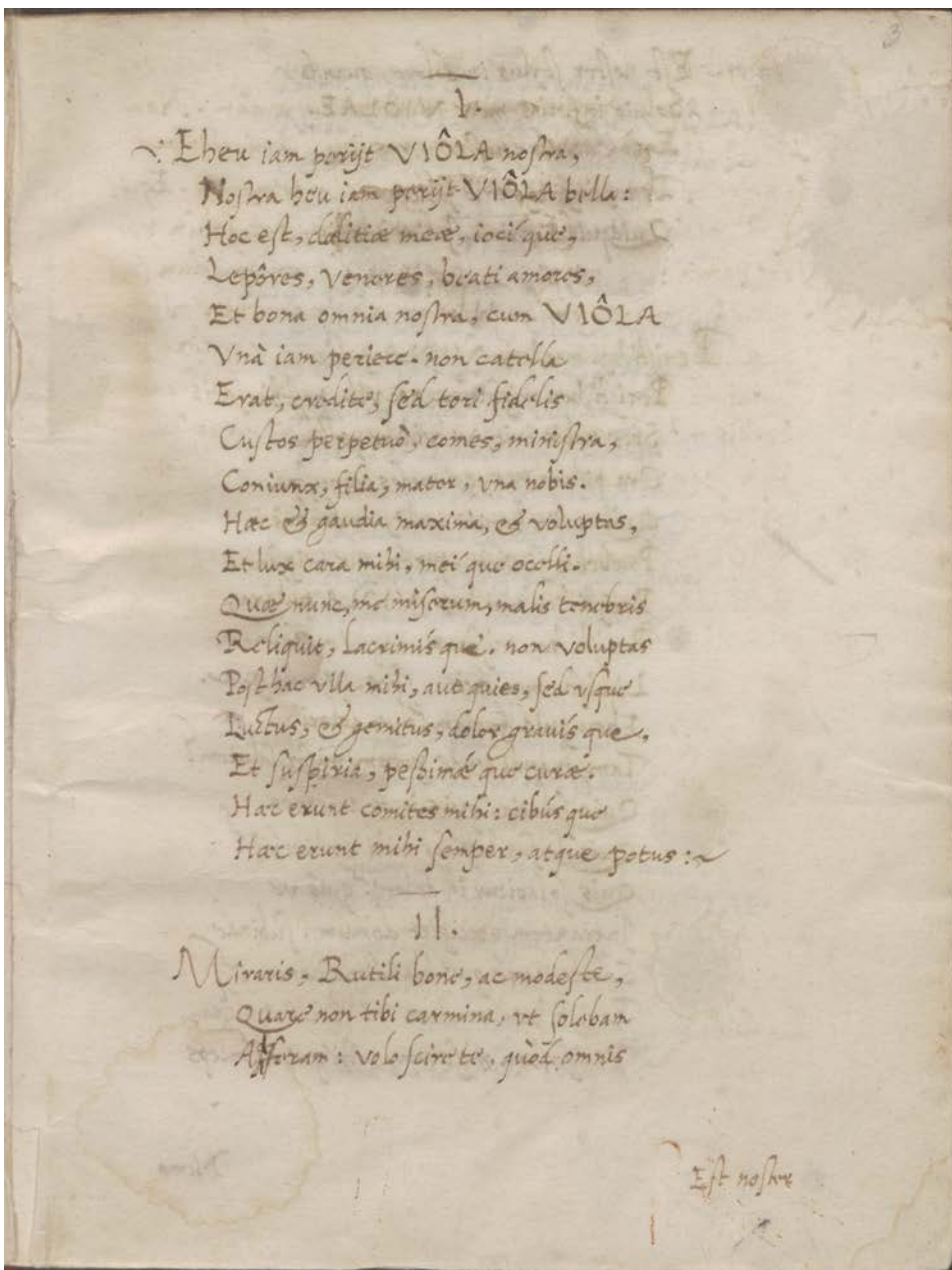 3
I.
Eheu iam perijt VIÔLA nostra,
Nostra heu iam perijt VIÔLA bella:
Hoc est, delitiæ meæ, ioci´que,
Lepôres, Venores, beati amores,
Et bona omnia nostra, cum VIÔLA
Vnà iam periere. non catella
Erat, credite, sed tori fidelis
Custos perpetuò, comes, ministra,
Coniunx, filia, mater, vna nobis.
Hæc & gaudia maxima, & voluptas,
Et lux cara mihi, mei´que ocelli.
Quæ nunc, me miserum, malis tenebris
Reliquit, lacrimis´que. non voluptas
Posthac vlla mihi, aut quies, sed vsque
Luctus, & gemitus, dolor grauis´que,
Et suspiria, pessimæ´que curæ.
Hæc erunt comites mihi: cibus´que
Hæc erunt mihi semper, atque potus:~
II.
Miraris, Rutili bone, ac modeste,
Quare non tibi carmina, vt solebam
Afferam: volo scire te, quòd omnis
Est noster